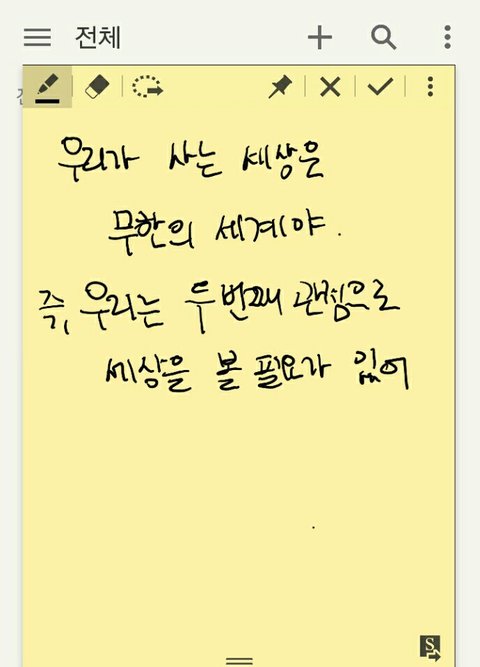 전체
우리가 사는 세상은
무한의 세계야.
즉, 우리는 두번째 관점으로
세상을 볼 필요가 있어